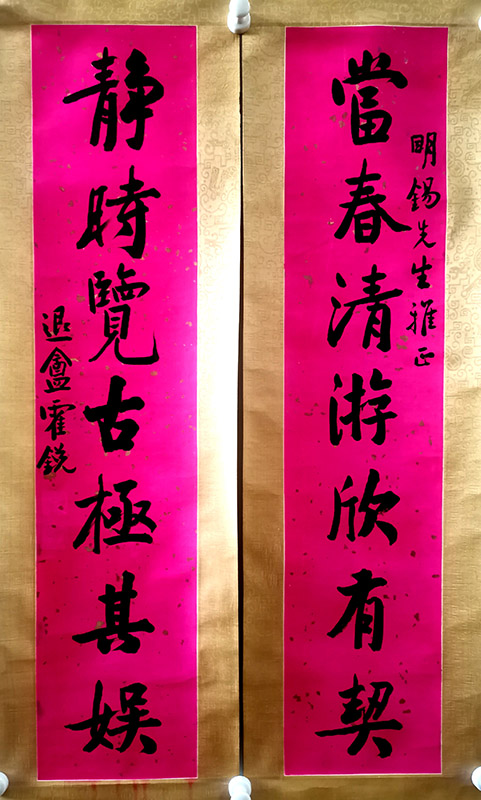 明錫先生雅正
當春清游欣有契
靜時覽古極其娱
退盦霍銳